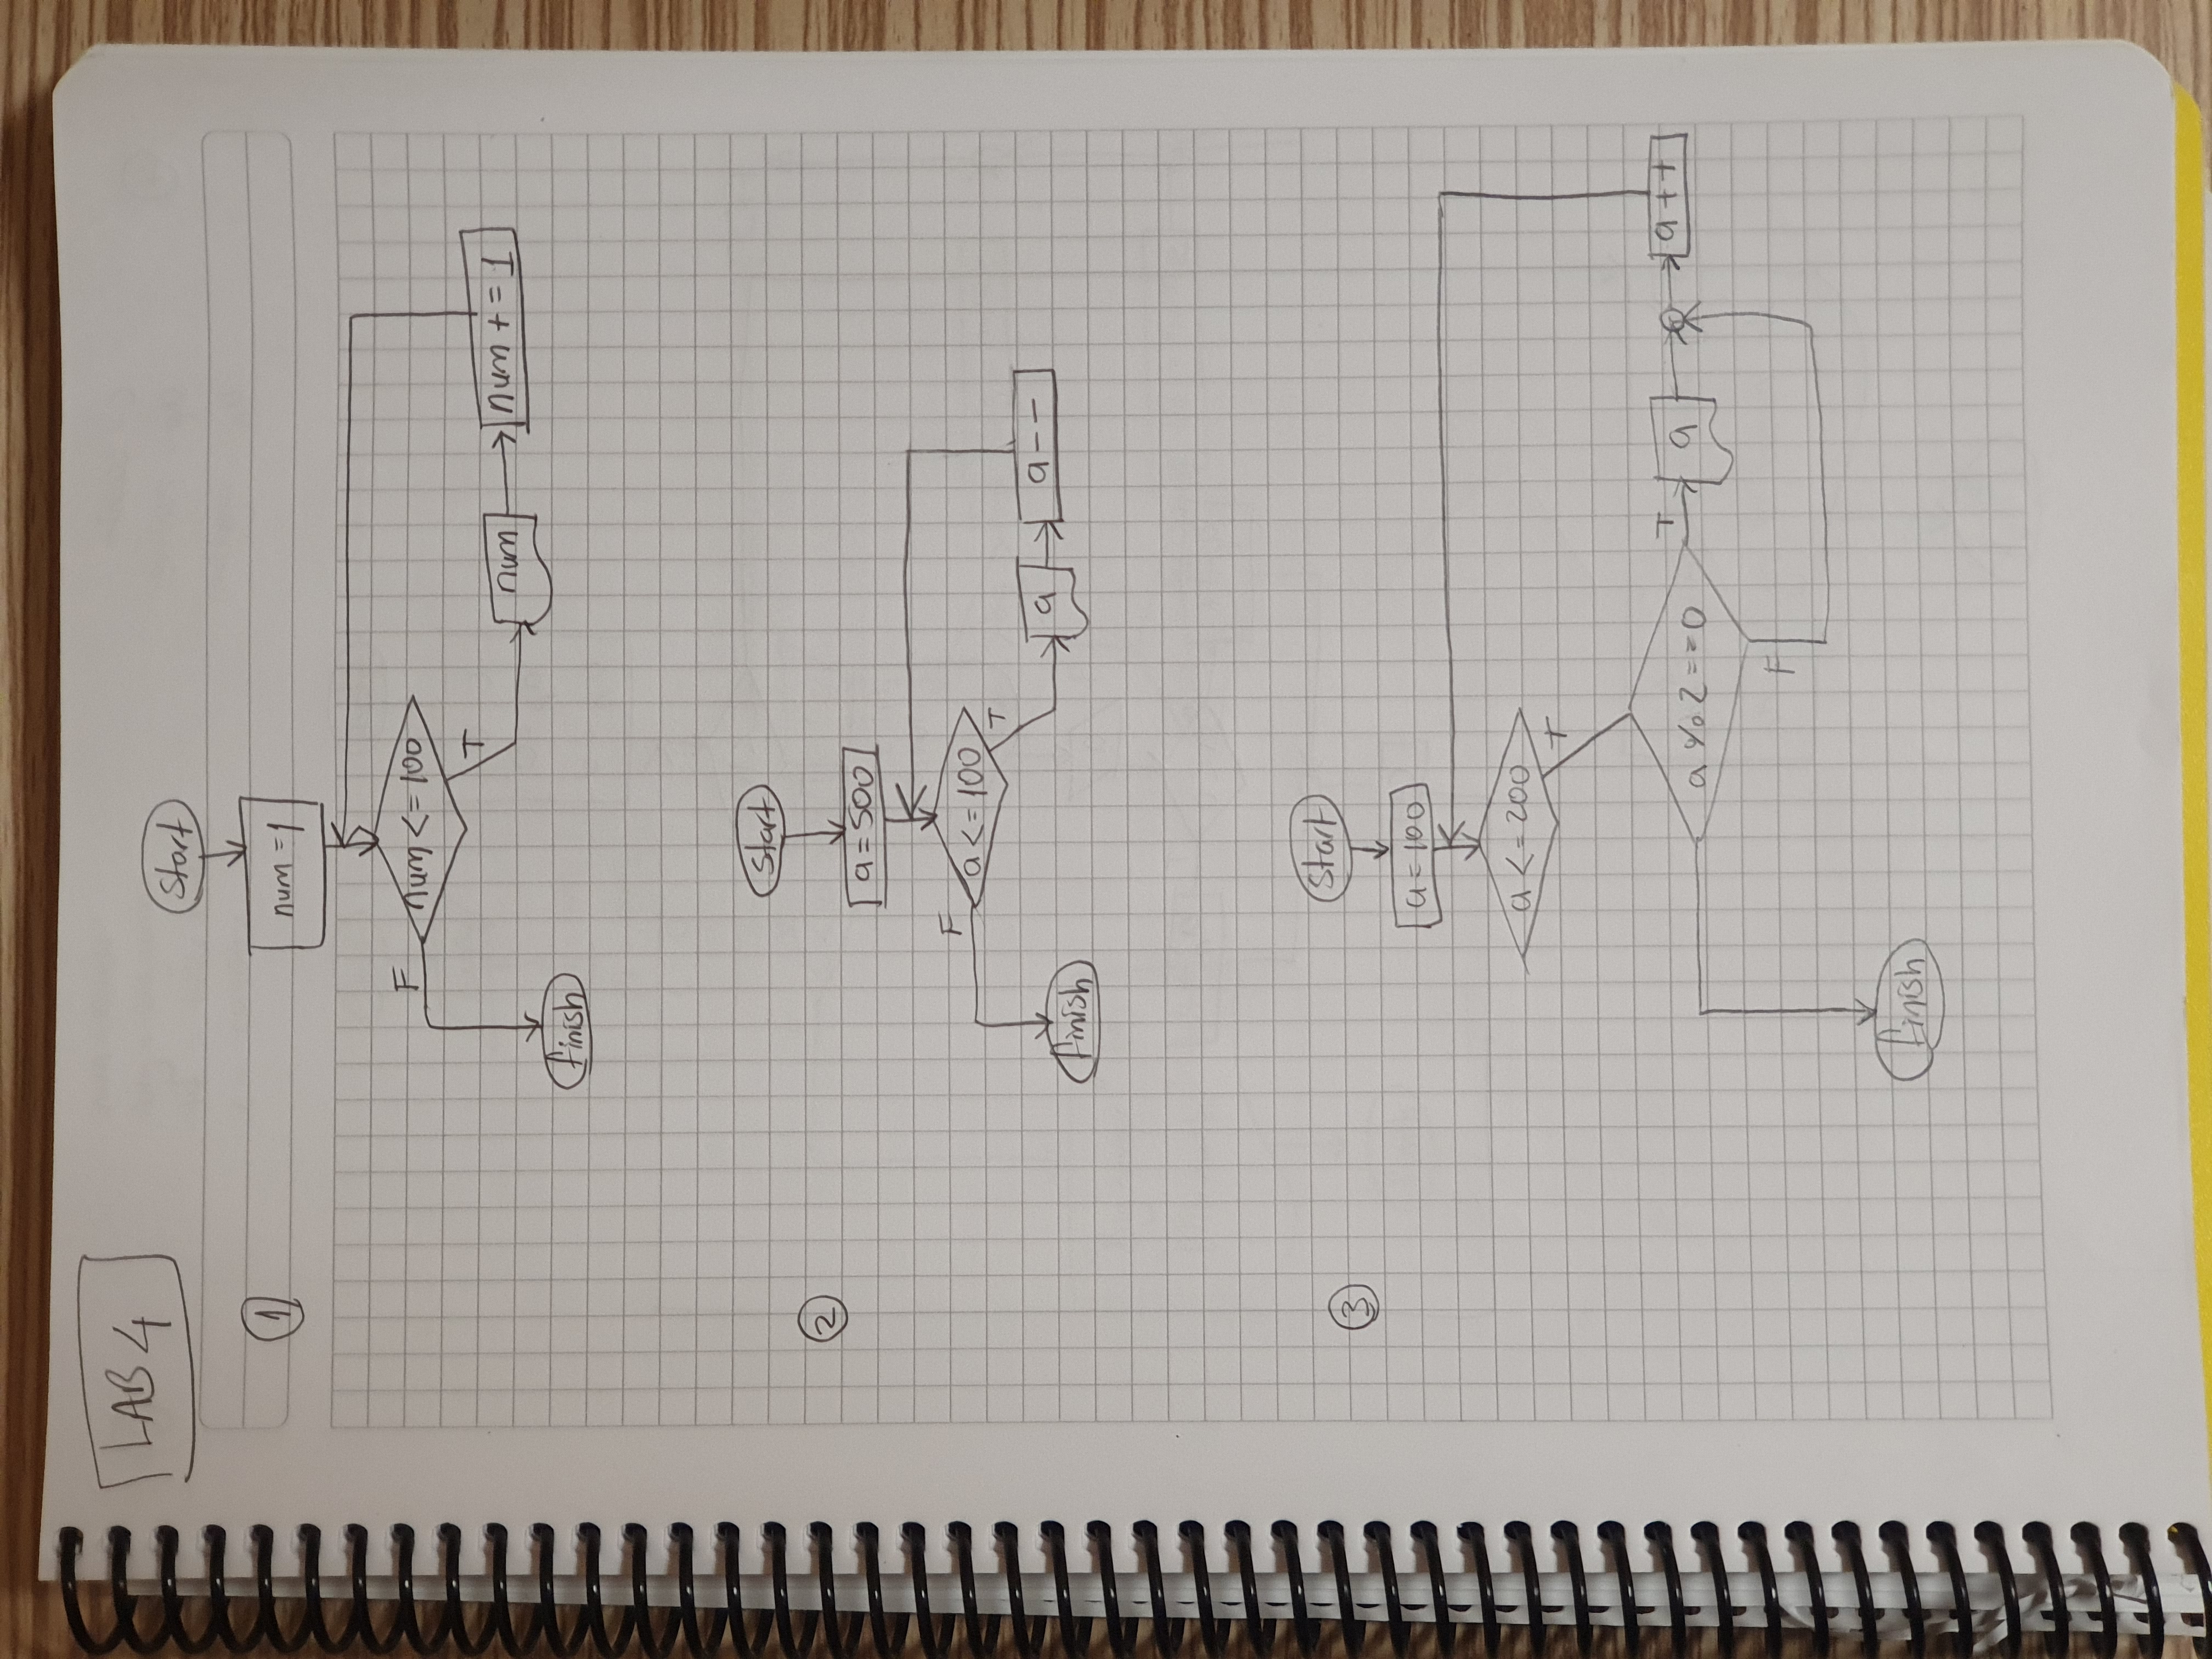 LAB 4
Start
1
num = 1
F
num <= 100
T
num
num + = 1
finish
Start
2
a = 500
F
a <= 100
T
a
a--
finish
Start
3
a = 100
a <= 200
T
a % 2 == 0
T
a
a++
F
finish